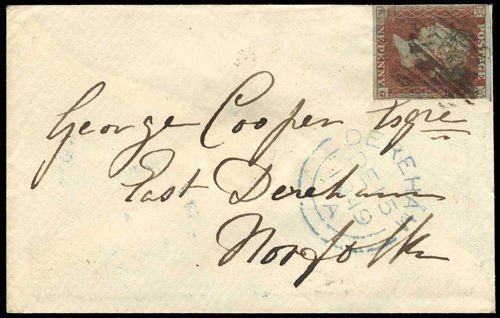 POSTAGE
ONE PENNY
George Cooper Esqre
East Dereham
Norfolk
DEREHAM
DE 15
1849
A